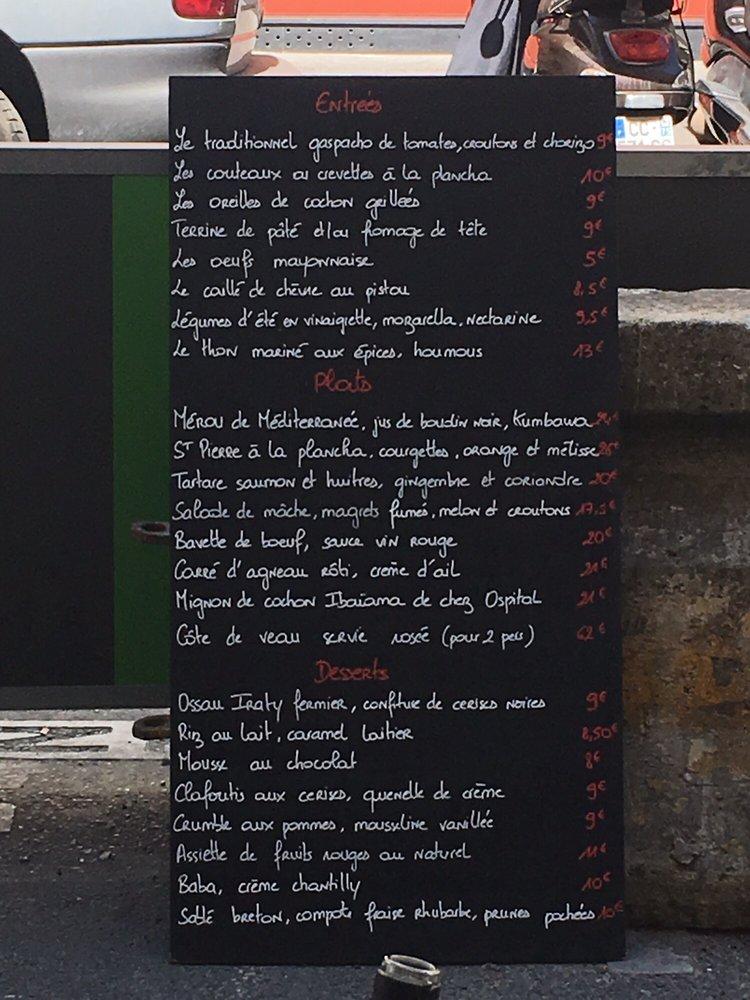 Entrées
Le traditionnel gaspacho de tomates, croutons et chorizo 9€
Les couteaux ou crevettes à la plancha 10€
Les oreilles de cochon grillées 9€
Terrine de pâté et/ou fromage de tête 9€
Les oeufs mayonnaise 5€
Le caillé de chèvre au pistou 8,5€
Légumes d'été en vinaigrette, mozarella, nectarine 9,5€
Le thon mariné aux épices, houmous 13€
Plats
Mérou de Méditerranée, jus de boudin noir, Kumbawa
ST Pierre à la plancha, courgettes, orange et mélisse
Tartare saumon et huitres, gingembre et coriandre 20€
Salade de mâche, magrets fumés, melon et croutons 17,5€
Bavette de boeuf, sauce vin rouge 20€
Carré d'agneau rôti, crème d'ail 21€
Mignon de cochon Ibaïama de chez Ospital 21€
Côte de veau servie rosée (pour 2 pers) 62€
Desserts
Ossau Iraty fermier, confiture de cerises noires 9€
Riz au lait, caramel laitier 8,50€
Mousse au chocolat 8€
Clafoutis aux cerises, quenelle de crème 9€
Crumble aux pommes, mousseline vanillée 9€
Assiette de fruits rouges au naturel 11€
Baba, crème chantilly 10€
Sablé breton, compote fraise rhubarbe, prunes pochées 10€